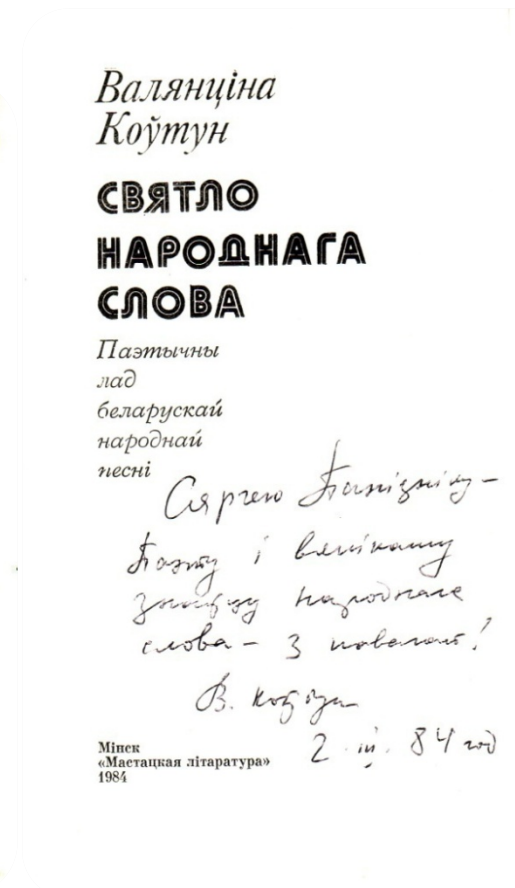 Валянціна
Коўтун
СВЯТЛО
НАРОДНАГА
СЛОВА
Паэтычны
лад
беларускай
народнай
песні
Сяргею Панізніку –
Паэту і вялікаму
знаўцу народнага
слова – з павагай!
В. Коўтун
2. III. 84 год
Мінск
«Мастацкая літаратура»
1984